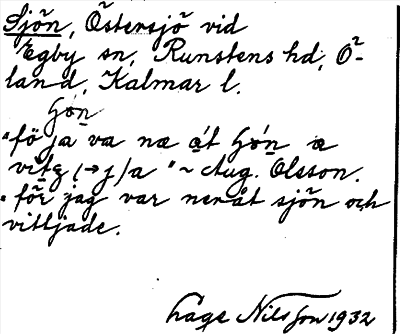 Sjön, Östersjö vid
Egby sn, Runstens hd, Ö-
land, Kalmar l.
"fö ja va næ
a" ~ Aug. Olsson.
"för jag var neråt sjön och
vittjade.
Nilsson 1932